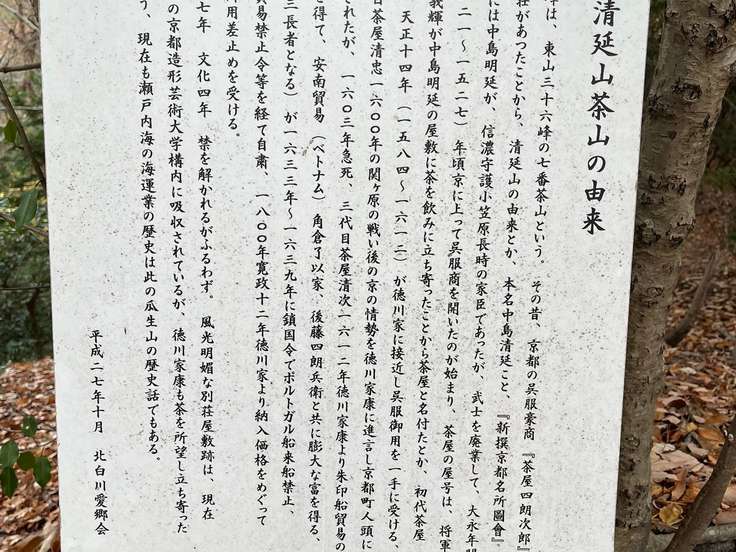 清延山茶山の由来
峰は、東山三十六峰の七番茶山という。その昔、京都の呉服豪商『茶屋四朗次郎』
荘があつたことから、清延山の由来とか、本名中島清延こと、『新撰京都名所圖會』
には中島明延が、信濃守護小笠原長時の家臣であったが、武士を廃業して、大永年間
二一～一五二七）年頃京に上って呉服商を開いたのが始まり、茶屋の屋号は、将軍
我輝が中島明延の屋敷に茶を飲みに立ち寄ったことから茶屋と名付たとか、初代茶屋
天正十四年（一五八四～一六一二）が徳川家に接近し呉服御用を一手に受ける、
目茶屋清忠一六００年の関ヶ原の戦い後の京の情勢を徳川家康に進言し京都町人頭に
されたが、一六０三年急死、三代目茶屋清次一六一二年徳川家康より朱印船貿易の
を得て、安南貿易（ベトナム）角倉了以家、後藤四朗兵衛と共に膨大な富を得る、
三長者となる）が一六三三年～一六三九年に鎖国令でポルトガル船来船禁止、
貿易禁止令等を経て自粛、一八００年寛政十二年徳川家より納入価格をめぐって
御用差止めを受ける。
七年　文化四年　禁を解かれるがふるわず。風光明媚な別荘屋敷跡は、現在
の京都造形芸術大学構内に吸収されているが、徳川家康も茶を所望し立ち寄った
う、現在も瀬戸内海の海運業の歴史は此の瓜生山の歴史話でもある。
平成二七年十月　北白川愛郷会